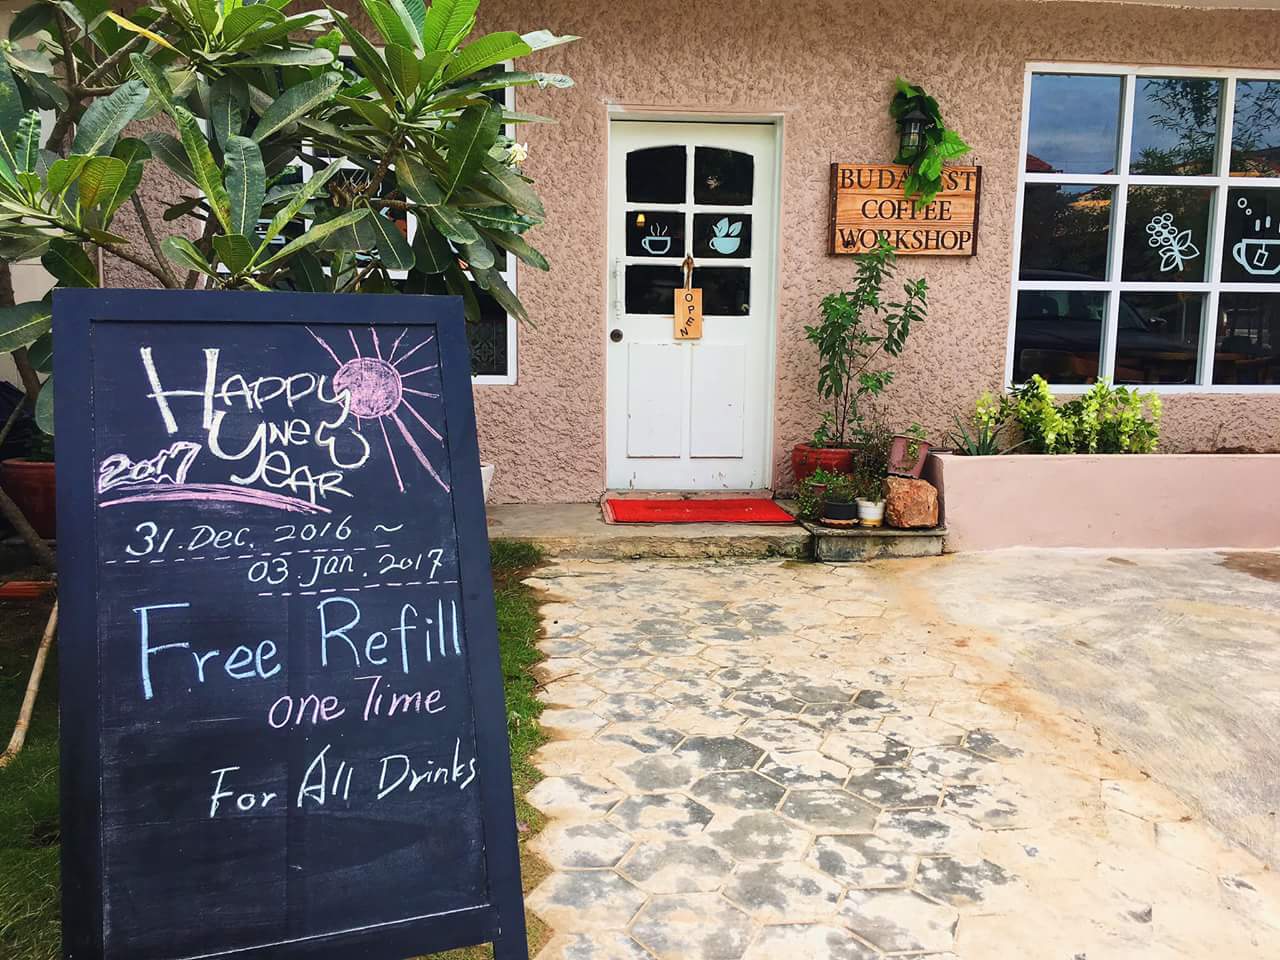 Happy
New
Year
2017
31.Dec. 2016 ~
03.Jan.2017
Free Refill
one Time
For All Drinks
OPEN
BUDAPEST
COFFEE
WORKSHOP